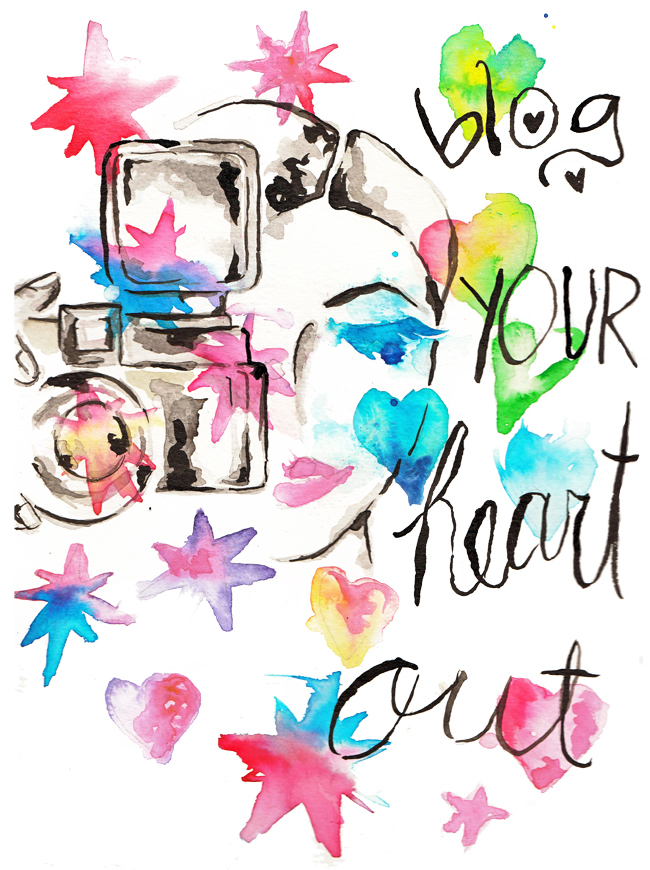 blog
YOUR
heart
out